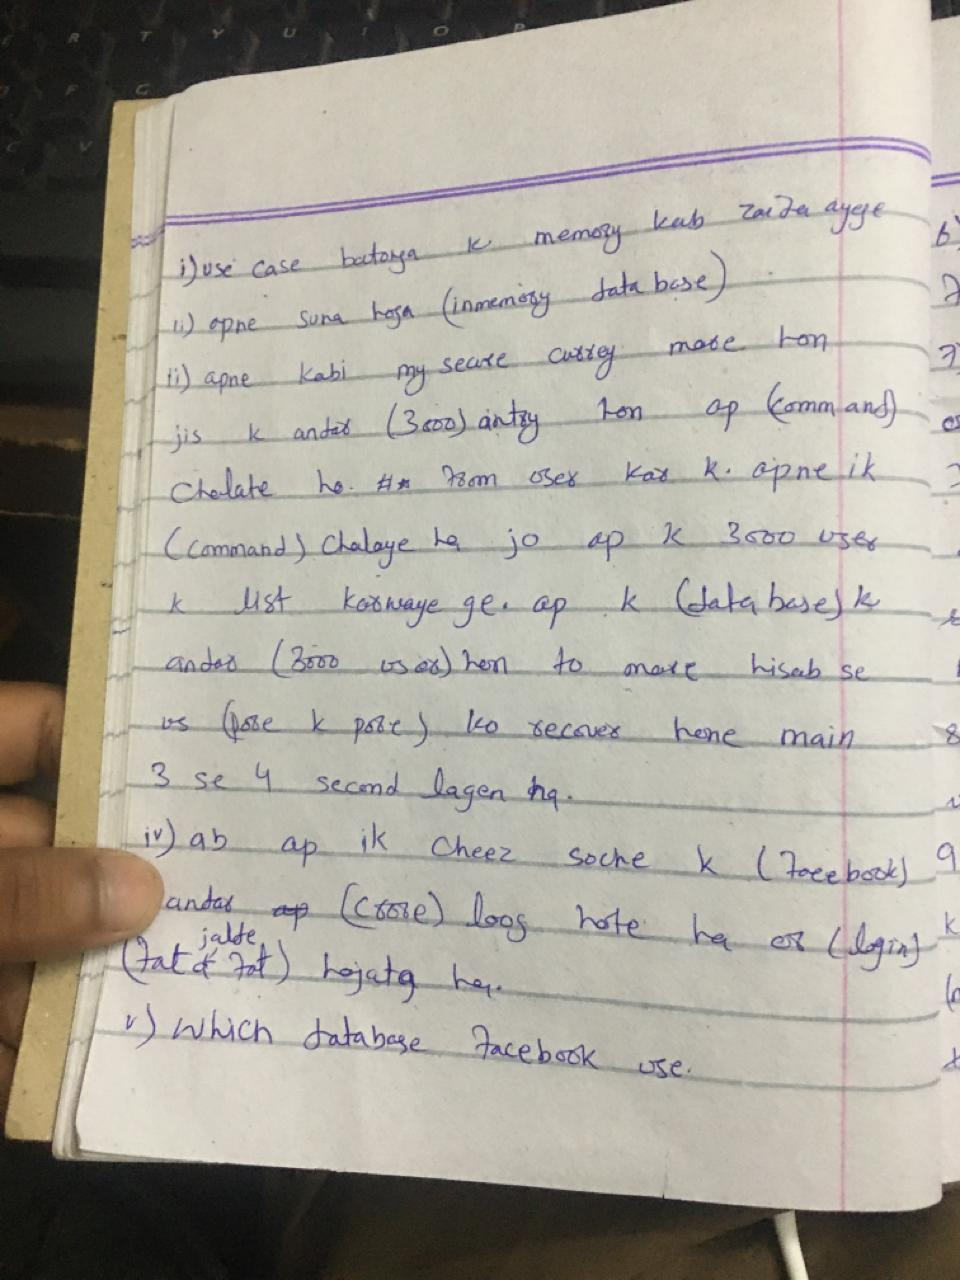 i) use case bataya k memory kab zaida ayege
ii) apne suna hoga (inmemory database)
iii) apne kabi my secure currey mare hon
jis k andar (3000) antry hon ap (command)
Chalate ho. ## from user kar k. apne ik
(command) chalaye ha jo ap k 3000 user
k list karwaye ge. ap k (database) k
andar (3000 user) hen to mare hisab se
us (pore k pore) ko recover hone main
3 se 4 second lagen ha.
iv) ab ap ik cheez soche k (facebook)
andar (crore) loog hote ha or (login)
jalde
(fat & fat) hojata ha.
v) which database facebook use.